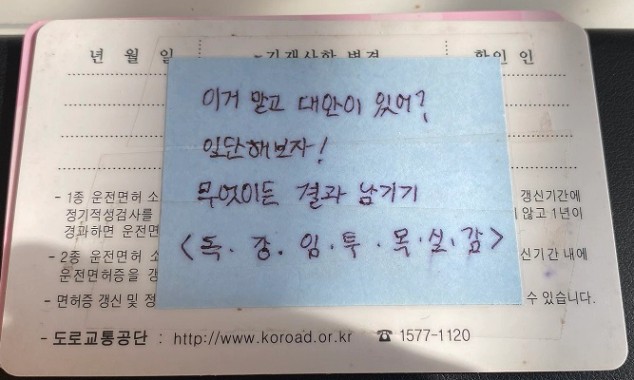 년 월 일 기재사항 변경 확인 인
이거 말고 대안이 있어?
일단해보자!
무엇이든 결과 남기기
<독.강.임.투.목.실.감>
- 1종 운전면허 소 갱신기간에
정기적성검사를 않고 1년이
경과하면 운전면
- 2종 운전면허 소 신기간 내에
운전면허증을 갱
- 면허증 갱신 및 정 수 있습니다.
- 도로교통공단 : http://www.koroad.or.kr ☎ 1577-1120